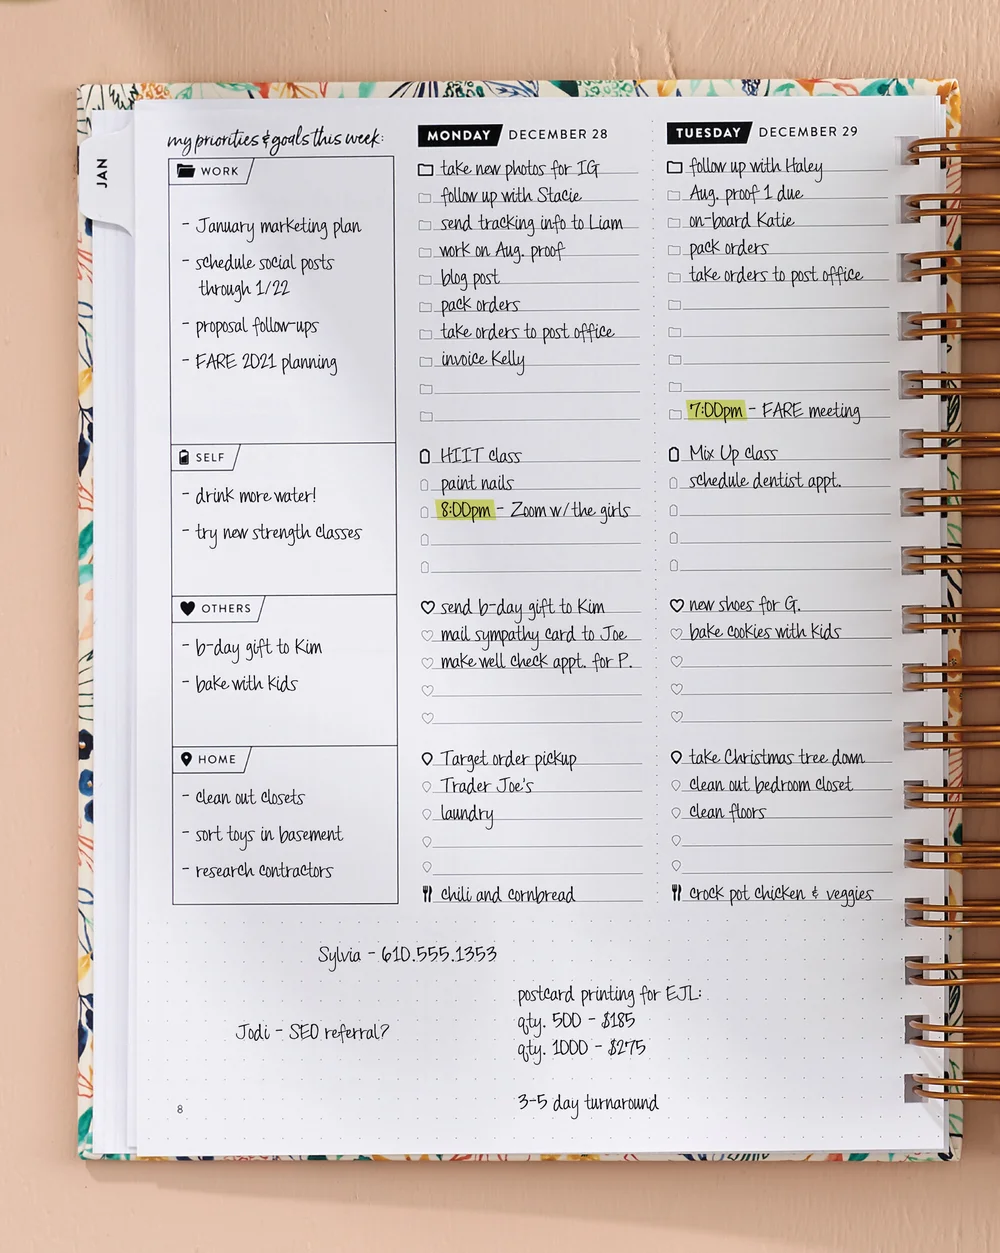 JAN
my priorities & goals this week:
WORK
- January marketing plan
- schedule social posts
through 1/22
- proposal follow-ups
- FARE 2021 planning
SELF
- drink more water!
- try new strength classes
OTHERS
- b-day gift to Kim
- bake with kids
HOME
- clean out closets
- sort toys in basement
- research contractors
MONDAY DECEMBER 28
take new photos for IG
follow up with Stacie
send tracking info to Liam
work on Aug. proof
blog post
pack orders
take orders to post office
invoice Kelly
HIIT class
paint nails
8:00pm - Zoom w/the girls
send b-day gift to Kim
mail sympathy card to Joe
make well check appt. for P.
Target order pickup
Trader Joe's
laundry
chili and cornbread
TUESDAY DECEMBER 29
follow up with Haley
Aug. proof 1 due
on-board Katie
pack orders
take orders to post office
7:00pm - FARE meeting
Mix Up class
schedule dentist appt.
new shoes for G.
bake cookies with kids
take Christmas tree down
clean out bedroom closet
clean floors
crock pot chicken & veggies
Sylvia - 610.555.1353
Jodi - SEO referral?
postcard printing for EJL:
qty. 500 - $185
qty. 1000 - $275
3-5 day turnaround
8